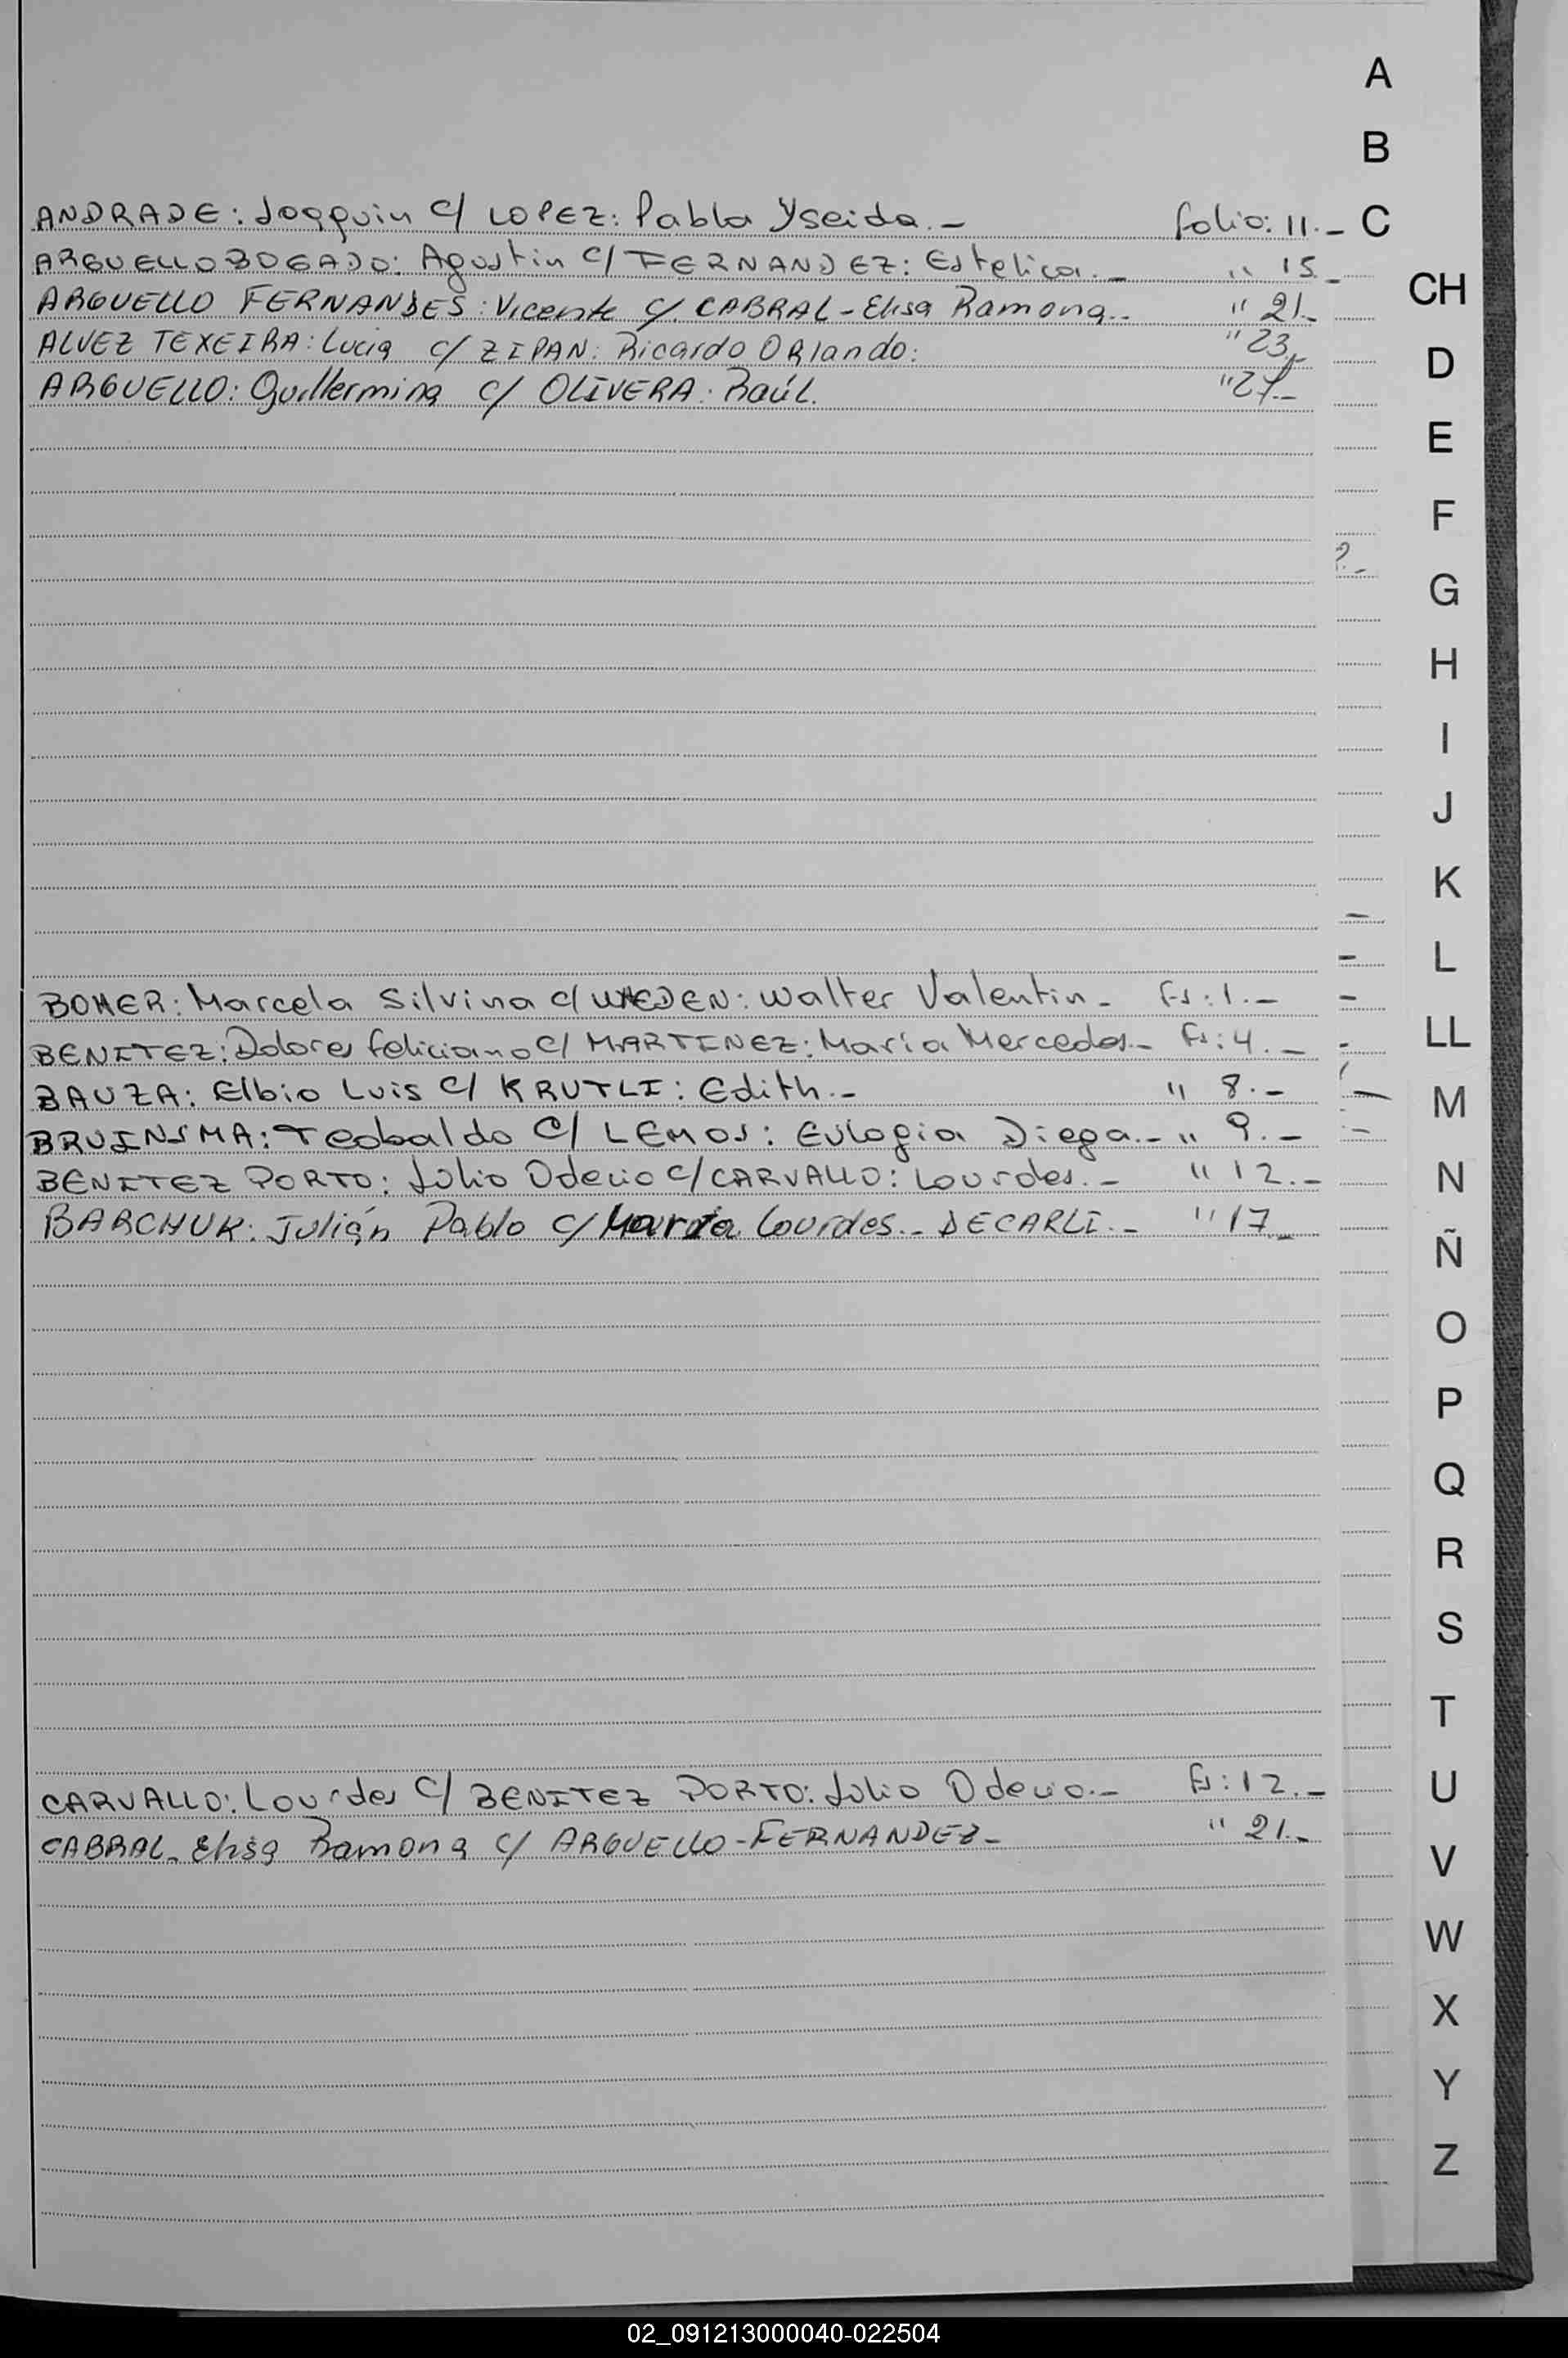 A
B
ANDRADE: Joaquin C/ LOPEZ: Pabla Yseida.- folio: 11.- C
ARGUELLO BOGADO: Agustin C/ FERNANDEZ: Estelica.- " 15.-
CH
ARGUELLO FERNANDES: Vicente C/ CABRAL - Elisa Ramona.- " 21.-
ALVEZ TEXEIRA: Lucia C/ ZIPAN: Ricardo ORlando: " 23.-
D
ARGUELLO: Guillermina C/ OLIVERA: Raúl. " 27.-
E
F
G
H
I
J
K
L
BOHER: Marcela Silvina C/ : Walter Valentin - Fs: 1.-
LL
BENITEZ: Dolores feliciano C/ MARTINEZ: María Mercedes.- Fs: 4.-
BAUZA: Elbio Luis C/ KRUTLI: Edith.- " 8.-
M
BRUINSMA: Teobaldo C/ LEMOS: Eulogia Diega.- " 9.-
BENITEZ PORTO: Julio Odecio C/ CARVALLO: Lourdes.- " 12.-
N
BARCHUK: Julián Pablo C/ María Lourdes.- DECARLI.- " 17.-
Ñ
O
P
Q
R
S
T
CARVALLO: Lourdes C/ BENITEZ PORTO: Julio Odecio.- Fs: 12.-
U
CABRAL - Elisa Ramona C/ ARGUELLO - FERNANDEZ - " 21.-
V
W
X
Y
Z
02_091213000040-022504